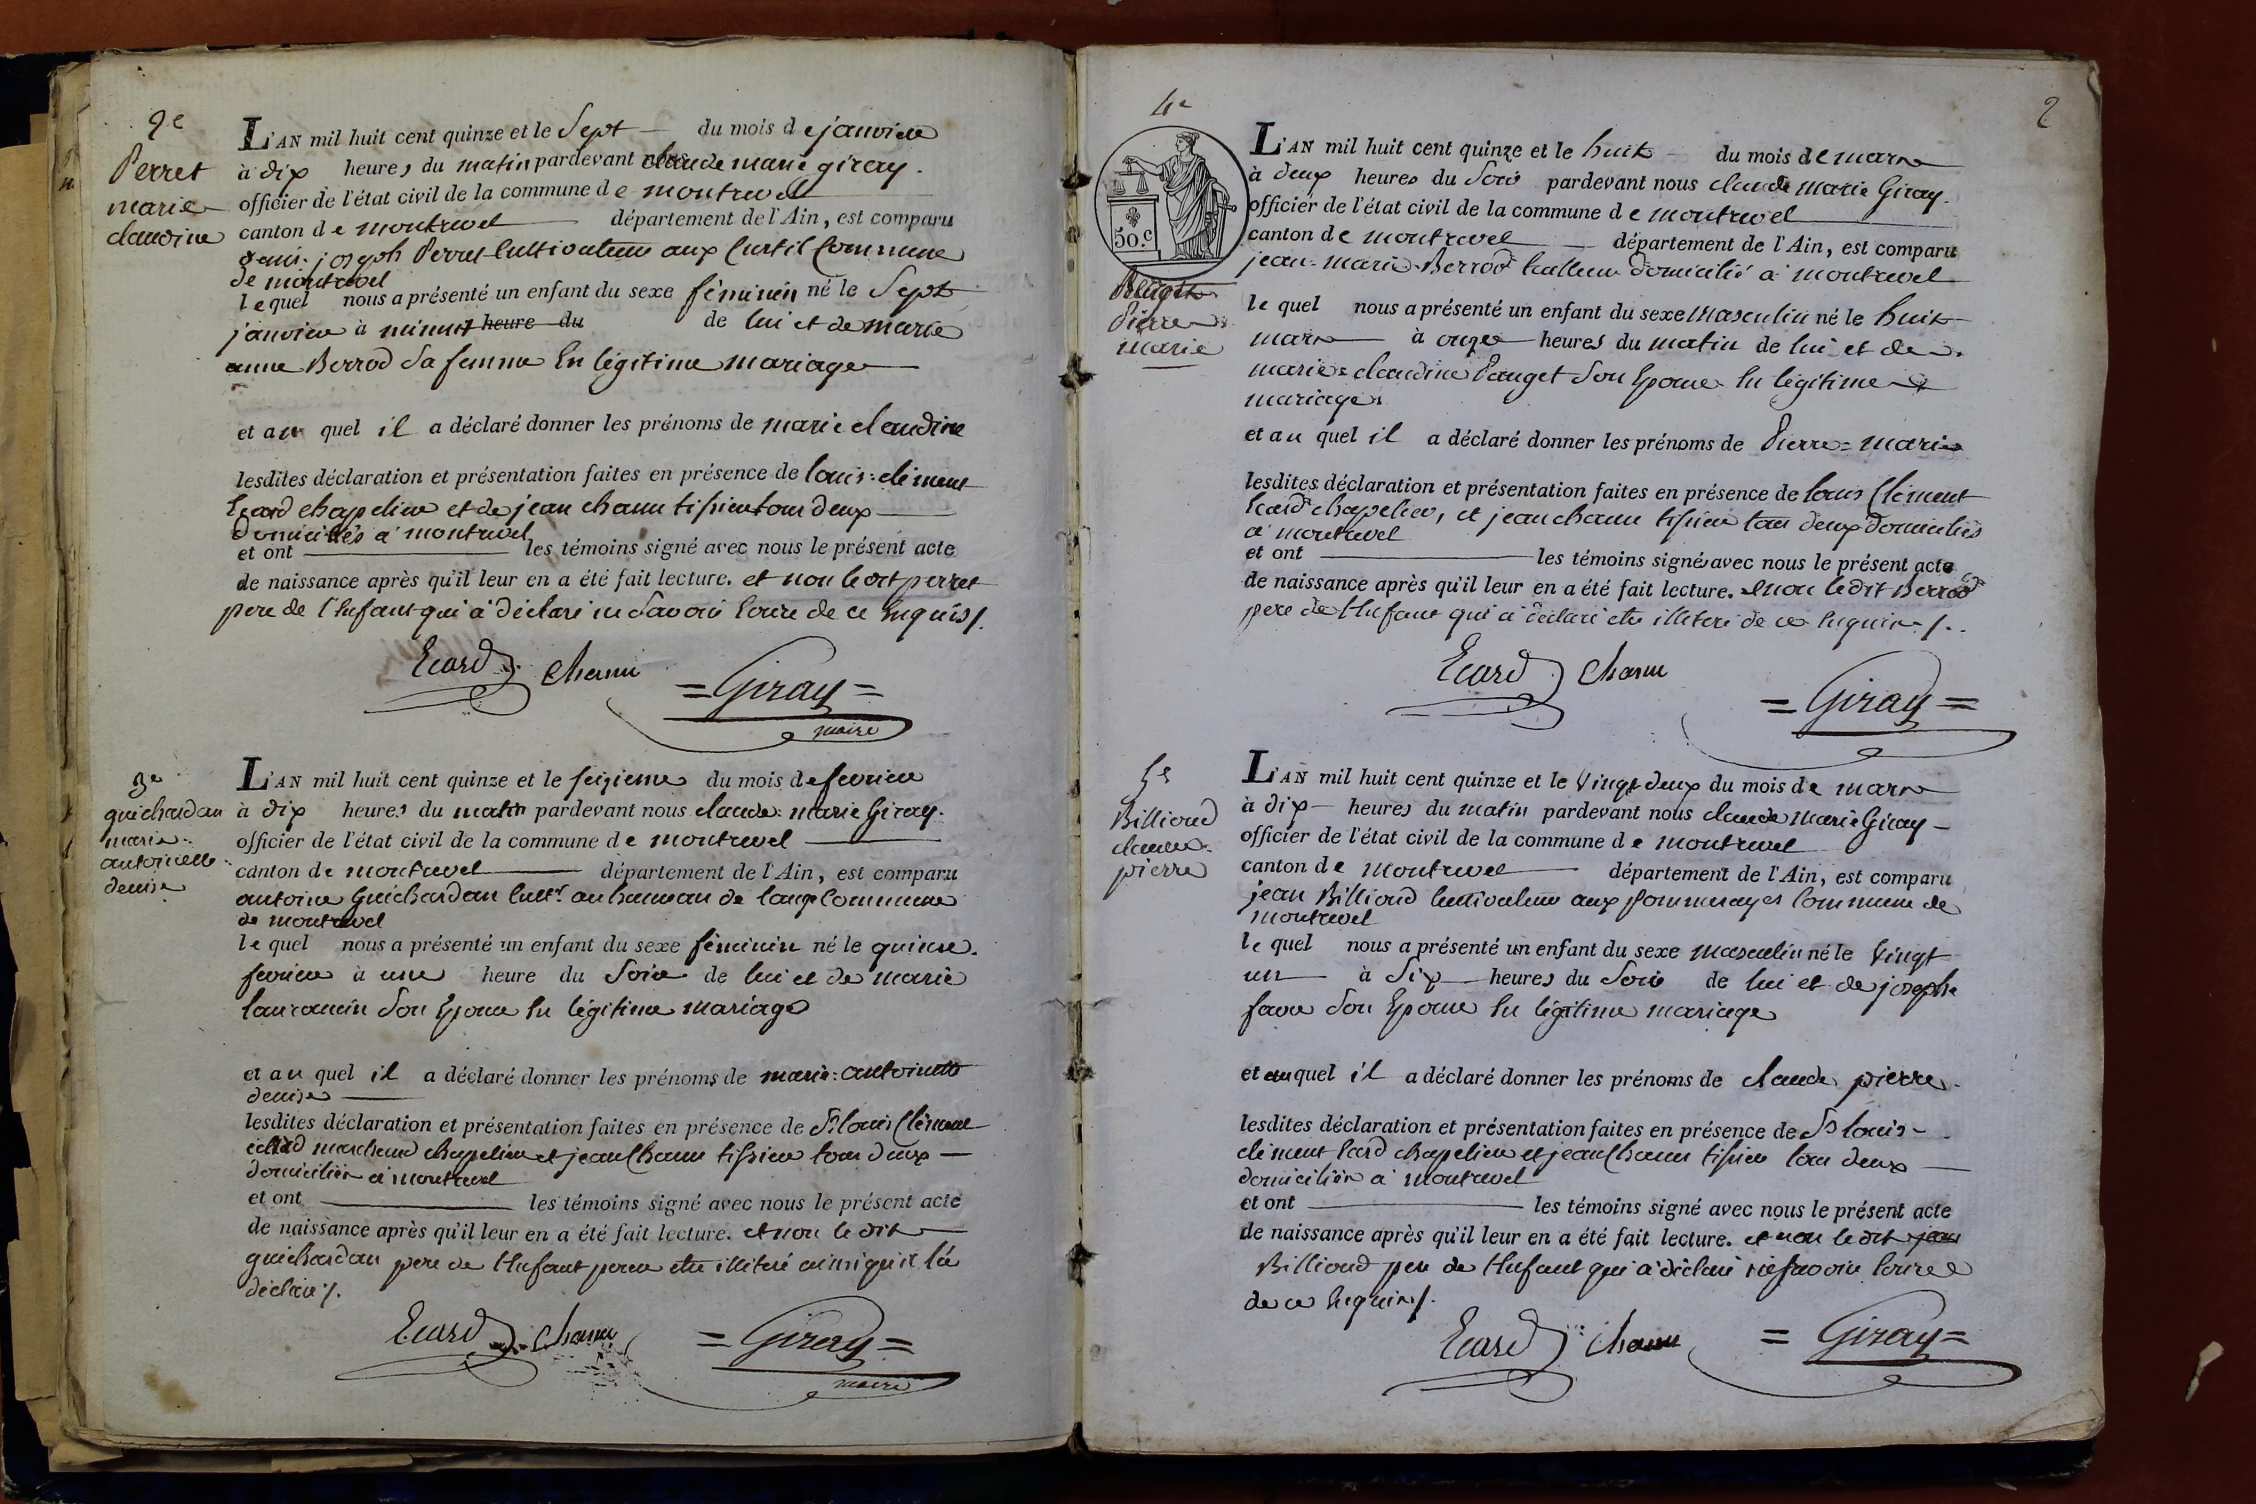 2e
Perret
marie
claudine
L'AN mil huit cent quinze et le Sept du mois de janvier
à dix heures du matin pardevant claude marie giray.
officier de l'état civil de la commune de montrevel
canton de montrevel département de l'Ain, est comparu
joseph Perret Cultivateur aux Curtil Commune
de montrevel
lequel nous a présenté un enfant du sexe féminin né le Sept
janvier à minuit heure du de lui et de marie
anne Berrod Sa femme En légitime mariage
et au quel il a déclaré donner les prénoms de marie claudine
lesdites déclaration et présentation faites en présence de louis clément
Ecard chapelier et de jean chanu tissier tous deux
Domiciliés a montrevel
et ont les témoins signé avec nous le présent acte
de naissance après qu'il leur en a été fait lecture. et non le dit perret
pere de l'Enfant qui a déclaré ne Savoir Ecrire de ce Enquis /.
Ecard chanu = Giray =
maire
3e
guichardan
marie
antoinette
denise
L'AN mil huit cent quinze et le seizieme du mois de fevrier
à dix heures du matin pardevant nous claude marie Giray.
officier de l'état civil de la commune de montrevel
canton de montrevel département de l'Ain, est comparu
antoine Guichardan Cultr. au hameau de Commune
de montrevel
lequel nous a présenté un enfant du sexe féminin né le quinze
fevrier à une heure du Soir de lui et de marie
Son Epouse En légitime mariage
et au quel il a déclaré donner les prénoms de marie antoinette
denise
lesdites déclaration et présentation faites en présence de Sr. louis Clément
écard marchand chapelier et jean Chanu tissier tous deux
domiciliés a montrevel
et ont les témoins signé avec nous le présent acte
de naissance après qu'il leur en a été fait lecture. et non le dit
guichardan pere de l'Enfant pour etre illiteré ainsi qu'il l'a
déclaré /.
Ecard chanu = Giray =
maire
2
4e
50.c
Pierre
marie
L'AN mil huit cent quinze et le huit du mois de mars
à deux heures du Soir pardevant nous claude marie Giray.
officier de l'état civil de la commune de montrevel
canton de montrevel département de l'Ain, est comparu
jean-marie Berrod tailleur domicilié a montrevel
le quel nous a présenté un enfant du sexe masculin né le huit
mars à onze heures du matin de lui et de
marie claudine Pauget Son Epouse En légitime
mariage
et au quel il a déclaré donner les prénoms de Pierre = marie
lesdites déclaration et présentation faites en présence de louis Clément
Ecard chapelier, et jean chanu tissier tous deux domiciliés
a montrevel
et ont les témoins signé avec nous le présent acte
de naissance après qu'il leur en a été fait lecture. et non le dit Berrod
pere de l'Enfant qui a déclaré etre illiteré de ce Enquis /.
Ecard chanu = Giray =
5e
Billioud
claude
pierre
L'AN mil huit cent quinze et le Vingt deux du mois de mars
à dix heures du matin pardevant nous claude marie Giray
officier de l'état civil de la commune de montrevel
canton de montrevel département de l'Ain, est comparu
jean Billioud Cultivateur aux Pommerayes Commune de
montrevel
le quel nous a présenté un enfant du sexe masculin né le Vingt
un à Six heures du Soir de lui et de josephe
favre Son Epouse En légitime mariage
et au quel il a déclaré donner les prénoms de claude pierre
lesdites déclaration et présentation faites en présence de Sr louis
clément Ecard chapelier et jean Chanu tissier tous deux
domiciliés a montrevel
et ont les témoins signé avec nous le présent acte
de naissance après qu'il leur en a été fait lecture. et non le dit jean
Billioud pere de l'Enfant qui a déclaré ne savoir Ecrire
de ce Enquis /.
Ecard chanu = Giray =